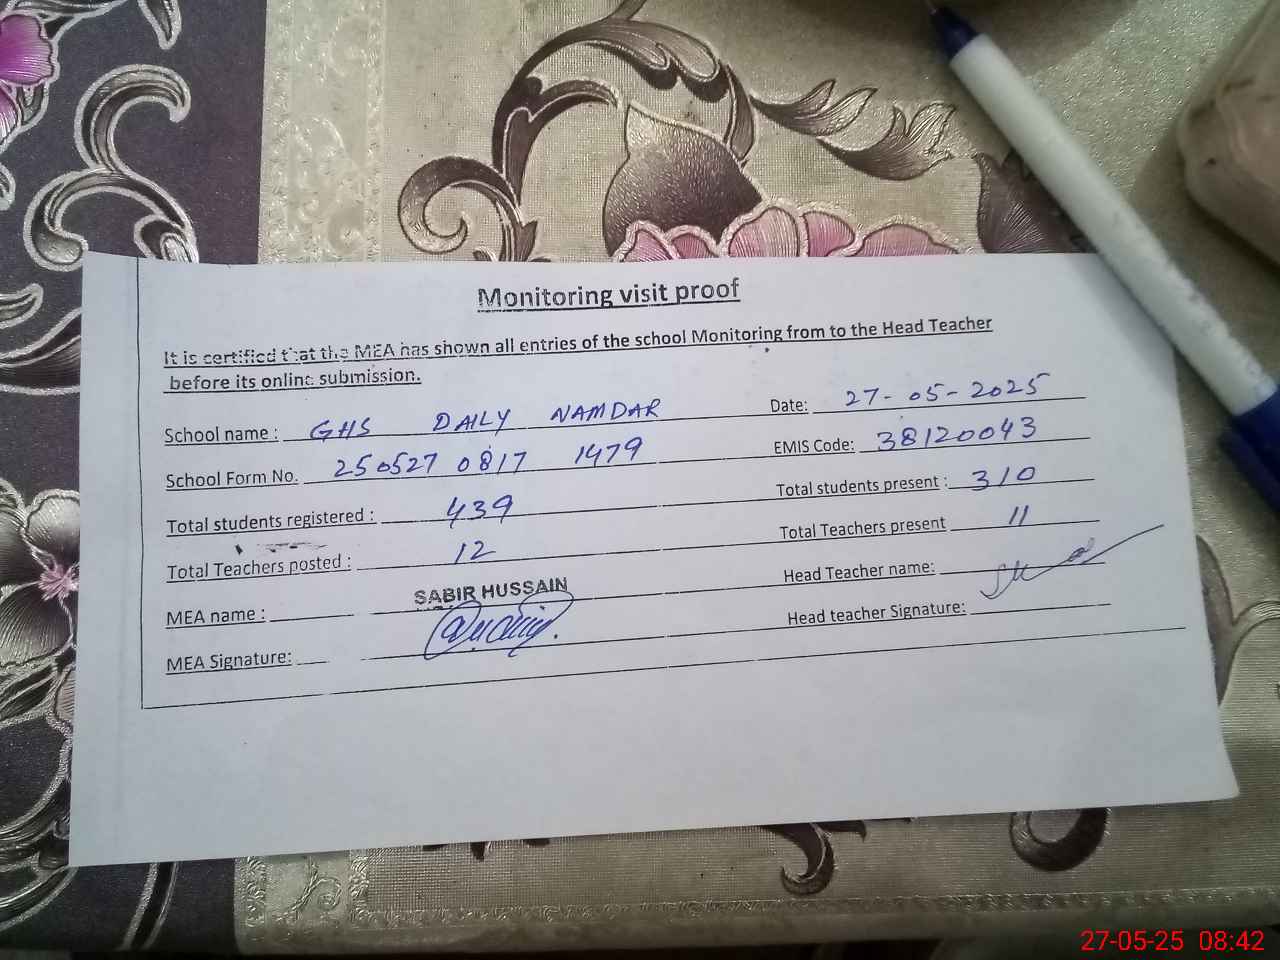 Monitoring visit proof
It is certified that the MEA has shown all entries of the school Monitoring from to the Head Teacher
before its online submission.
School name : GHS DAILY NAMDAR Date: 27-05-2025
School Form No. 250527 0817 1479 EMIS Code: 38120043
Total students registered : 439 Total students present : 310
Total Teachers posted : 12 Total Teachers present 11
MEA name : SABIR HUSSAIN Head Teacher name:
MEA Signature: Head teacher Signature:
27-05-25 08:42